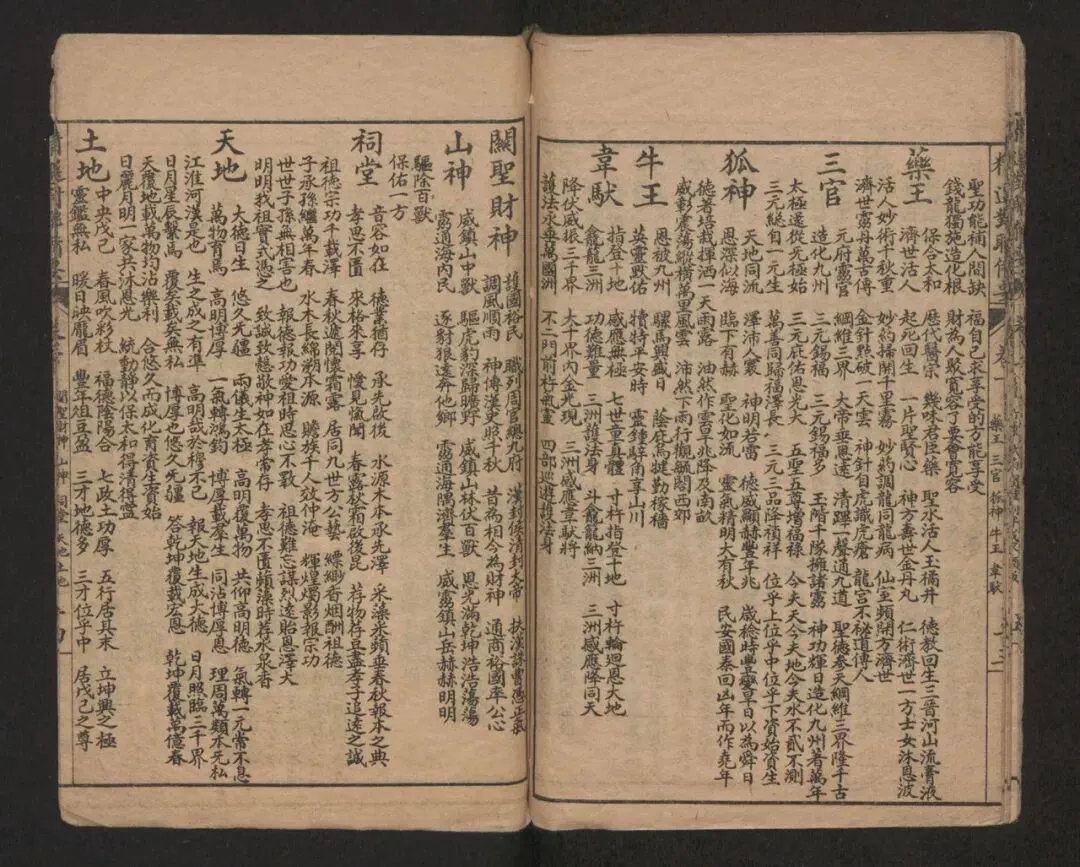 聖功能補人間缺 福自己求享受的方能享受
錢龍獨施造化根 財為人聚寬容了要會寬容
藥王 保合太和 歷代醫宗 幾味君臣藥 聖水活人玉橘井 德教回生三晉河山流膏液
濟世活人 起死回生 一片聖賢心 神方壽世金丹丸 仁術濟世一方士女沐恩波
活人妙術千秋重 妙約掃開千里霧 妙約調龍同龍病 仙室頻開方濟世
濟世靈丹萬古傳 金針點破一天雲 神針自虎識虎瘡 龍宮不秘道傳人
三官 元府靈官 綱維三界 大帝垂恩遠 清蹕一聲通九道 聖德參天綱維三界隆千古
造化九州 三元錫福 三元錫福多 玉階千隊擁諸靈 神功輝日造化九州著萬年
太極還從先極始 三元庇佑恩光大 五聖五尊增福祿 今夫天今夫地今夫水不貳不測
三元總自一元生 萬善同歸福澤長 三元三品降禎祥 位乎上位乎中位乎下資始資生
狐神 天地同流 澤沛人寰 神明右雷 德威顯赫豐年兆 歲稔時豐日以為舜日
恩深似海 臨下有赫 聖化如流 靈氣精明大有秋 民安國泰回凶年而作堯年
德著培栽揮洒一天雨露 油然作雲早兆降及南畝
威彰震蕩縱橫萬里風雲 沛然下雨行觀騰西郊
牛王 恩被九州 騾馬興盛日 蔭庇馬犍勤稼穡
英靈默佑 犢特平安時 靈鍾騂角享山川
韋馱 指登十地 感應無極 七世童真體 寸杵指登十地 寸杵輪迴恩大地
龕籠三洲 功德難量 三洲護法身 斗龕籠納三洲 三洲感應降同天
降伏威振三千界 大千界內金光現 三洲感應韋馱將
護法永垂萬國洲 不二門前杵氣靈 四部巡遊護法身
藥王 三官 狐神 牛王 韋馱
關聖財神 護國裕民 職列周官總九府 漢封候清封大帝 扶漢誅曹憑正氣
調風順雨 神傳漢史昭千秋 昔為相今為財神 通商裕國率公心
山神 威鎮山中獸 驅虎豹深歸曠野 威鎮山林伏百獸 恩光滿乾坤浩浩蕩蕩
靈通海內民 逐豺狼遠奔他鄉 靈通海隅濟羣生 威靈鎮山岳赫赫明明
驅除百獸
保佑一方
祠堂 音容如在 德業猶存 承先啟後 水源木本承先澤 采藻采蘋垂春秋報本之典
孝思不匱 來格來享 僾見愾聞 春露秋霜啟後昆 荐物荐豆盡孝子追遠之誠
祖德宗功千載澤 春秋遞閱懷霜露 居同九世方公藝 縹緲香烟酬祖德
子承孫繼萬年春 水木長綿朔本源 贍族千人效仲淹 輝煌燭影報宗功
世世子孫無相害也 報德報功愛祖時思心不斁 祖德難忘謀烈遠貽恩澤大
明明我祖實式憑之 致誠致慤敬神如在孝常存 孝思不匱蘋藻時荐水泉香
天地 大德曰生 悠久无疆 兩儀生太極 高明覆萬物 共仰高明德 氣轉一元常不息
萬物育焉 高明博厚 一氣轉鴻鈞 博厚載羣生 同沾博厚恩 理周萬類本无私
江淮河漢是也 生之成之有準 高明哉於穆不已 報天地生成大德 日月照臨三千界
日月星辰繫焉 覆矣載矣無私 博厚也悠久无疆 答乾坤覆載宏恩 乾坤覆載萬億春
天覆地載萬物物沾樂利 合悠久而成化育資生資始
日麗月明一家共沐恩光 統動靜以保太和得清得寧
土地 中央戊己 春風吹彩杖 福德陰陽合 七政土功厚 五行居其末 立坤輿之極
靈鑑無私 暖日映龐眉 豐年俎豆盈 三才地德多 三才位乎中 居戊己之尊
關聖財神 山神 祠堂 天地 土地